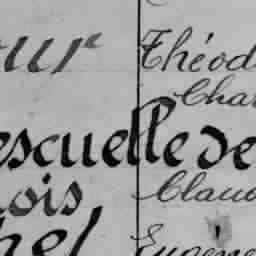 Théod
Char
escuelle de
ois Claud
hel Eugene